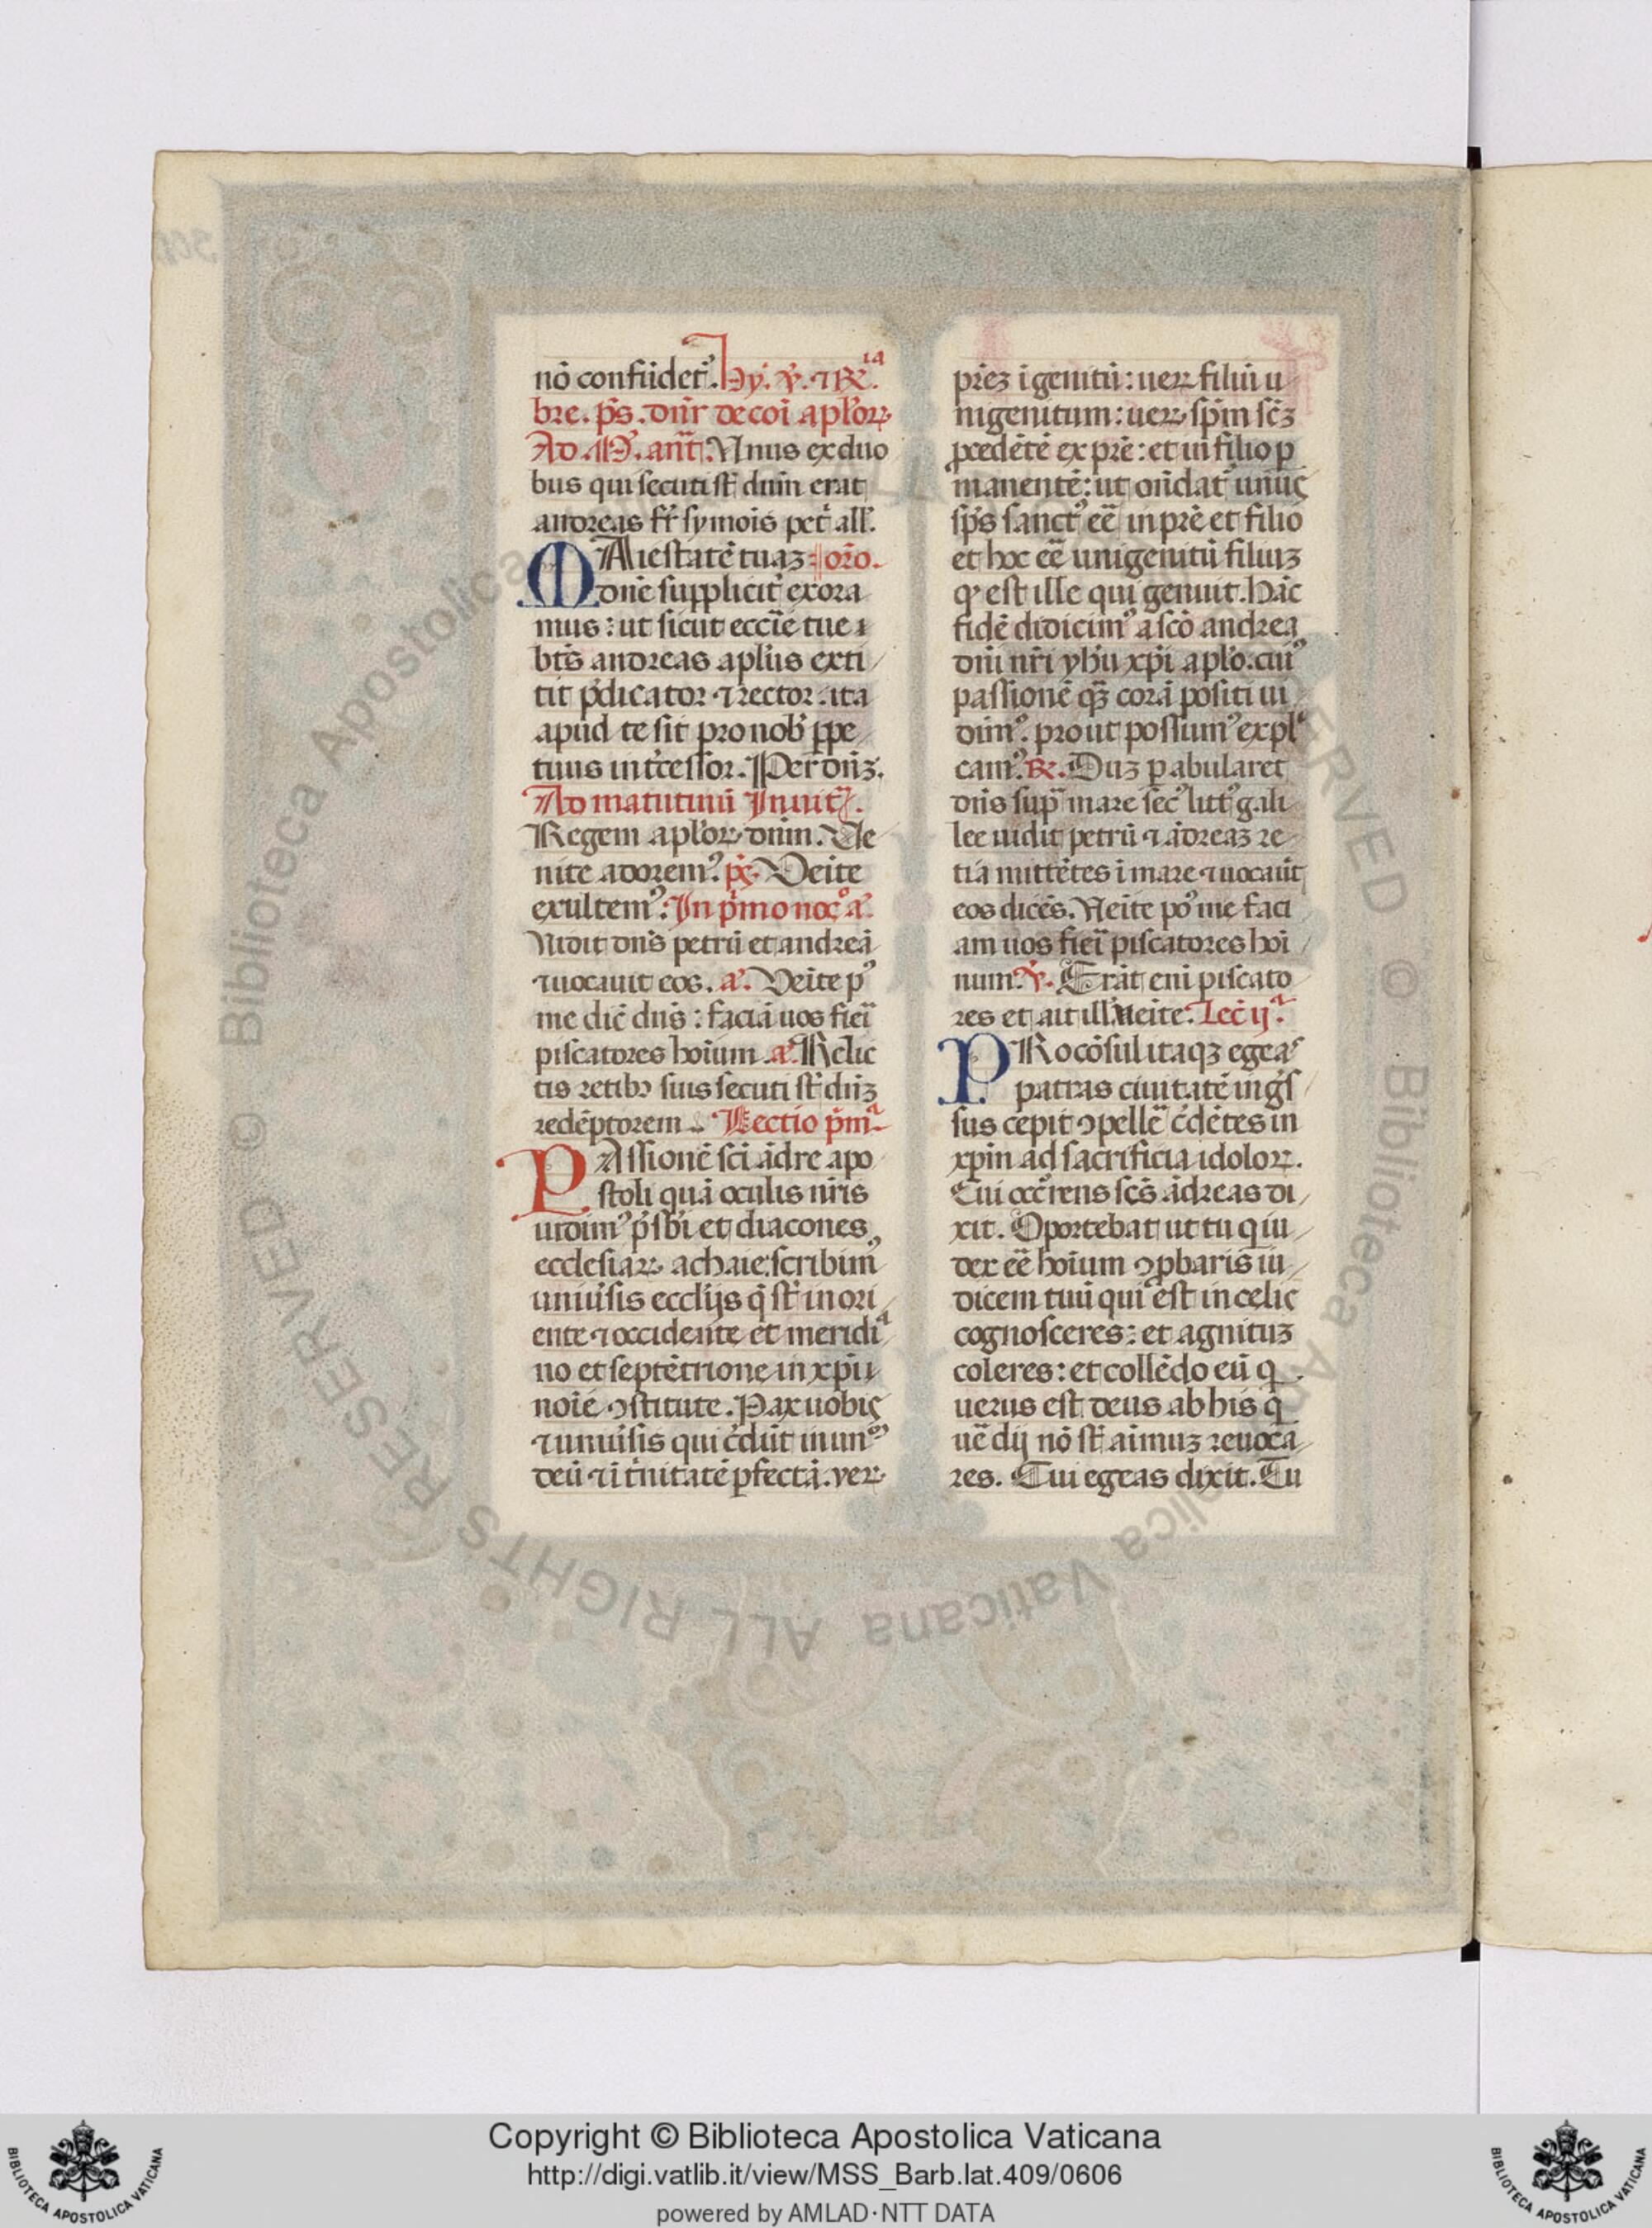 nō confūdet᷑. Hy. ꝟ. ⁊ ℞.ia
bre. p̄s. dn̄r de coī apl'oꝝ
Ad .M. an̄t. Unus ex duo
bus qui secuti st̄ dn̄m erat
andreas fr̄ symoīs pet̄ all'.
MAiestatē tuaꝫ oro.
dn̄e suppliciť exora
mus : ut sicut ecc̄ie tue
bt̄s andreas apl'us exti
tit p̄dicator ⁊ rector : ita
apud te sit pro nob' ꝑpe
tuus int̄cessor. Per dn̄ꝫ.
Ad matutinū Inuit̄.
Regem apl'oꝝ dn̄m. Ve
nite adorem᷒. p̄s. Veīte
exultem᷒. In p̄mo noc̄ a᷒.
Uidit dn̄s petrū et andreā
⁊ uocauit eos. a᷒. Veīte p᷒
me dic̄ dn̄s : faciā uos fieī
piscatores hoīum. a᷒. Relic
tis retibꝫ suis secuti st̄ dn̄ꝫ
redēptorem. Lectio p̄mª
PAssionē sc̄i ādre apo
stoli quā oculis nr̄is
uidim᷒ p̄sb'i et diacones
ecclesiaꝝ achaie: scribim᷒
uniu'sis eccl'ijs q̄ st̄ in ori
ente ⁊ occidente et meridiª
no et septētrione in xp̄i
noīe ꝯstitute. Pax uobis
⁊ uniu'sis qui c̄dūt in un᷒
deū ⁊ ī t̄nitatē ꝑfectā. ver
pr̄eꝫ īgenitū : ueꝝ filiū u
nigenitum : ueꝝ sp̄m sc̄ꝫ
ꝓcedētē ex pr̄e : et in filio ꝑ
manentē : ut on̄dat᷑ unus
sp̄s sanct᷒ eē in pr̄e et filio
et hoc eē unigenitū filiuꝫ
q̄ est ille qui genuit. Hāc
fidē didicim᷒ a sc̄o andrea
dn̄i nr̄i yh'u xp̄i apl'o. cui᷒
passionē qꝫ corā positi ui
dim᷒. prout possum᷒ expl
cam᷒. ℞. Duꝫ ꝑabularet
dn̄s sup̄ mare sec᷒ litt᷒ gali
lee uidit petrū ⁊ ādreaꝫ re
tia mittētes ī mare ⁊ uocauit
eos dicēs. Veīte po᷒ me faci
am uos fieī piscatores hoī
num. ꝟ. Erāt enī piscato
res et ait ill'. Veīte. Lec̄ ijª.
PRocōsul itaqꝫ egeas
patras ciuitatē inḡs
sus cepit ꝯpelle᷑ c̄dētes in
xp̄m ad sacrificia idoloꝝ.
Cui occ̄rens sc̄s ādreas di
xit. Oportebat ut tu q iu
dex eē hoīum ꝯꝓbaris iu
dicem tuū qui est in celis
cognosceres : et agnituꝫ
coleres : et collēdo eū q
uerus est deus ab his q̄
uē dij nō st̄ aīmuꝫ reuoca
res. Cui egeas dixit. Tu
Copyright © Biblioteca Apostolica Vaticana
http://digi.vatlib.it/view/MSS_Barb.lat.409/0606
powered by AMLAD·NTT DATA
© Biblioteca Apostolica Vaticana ALL RIGHTS RESERVED
BIBLIOTECA APOSTOLICA VATICANA
BIBLIOTECA APOSTOLICA VATICANA